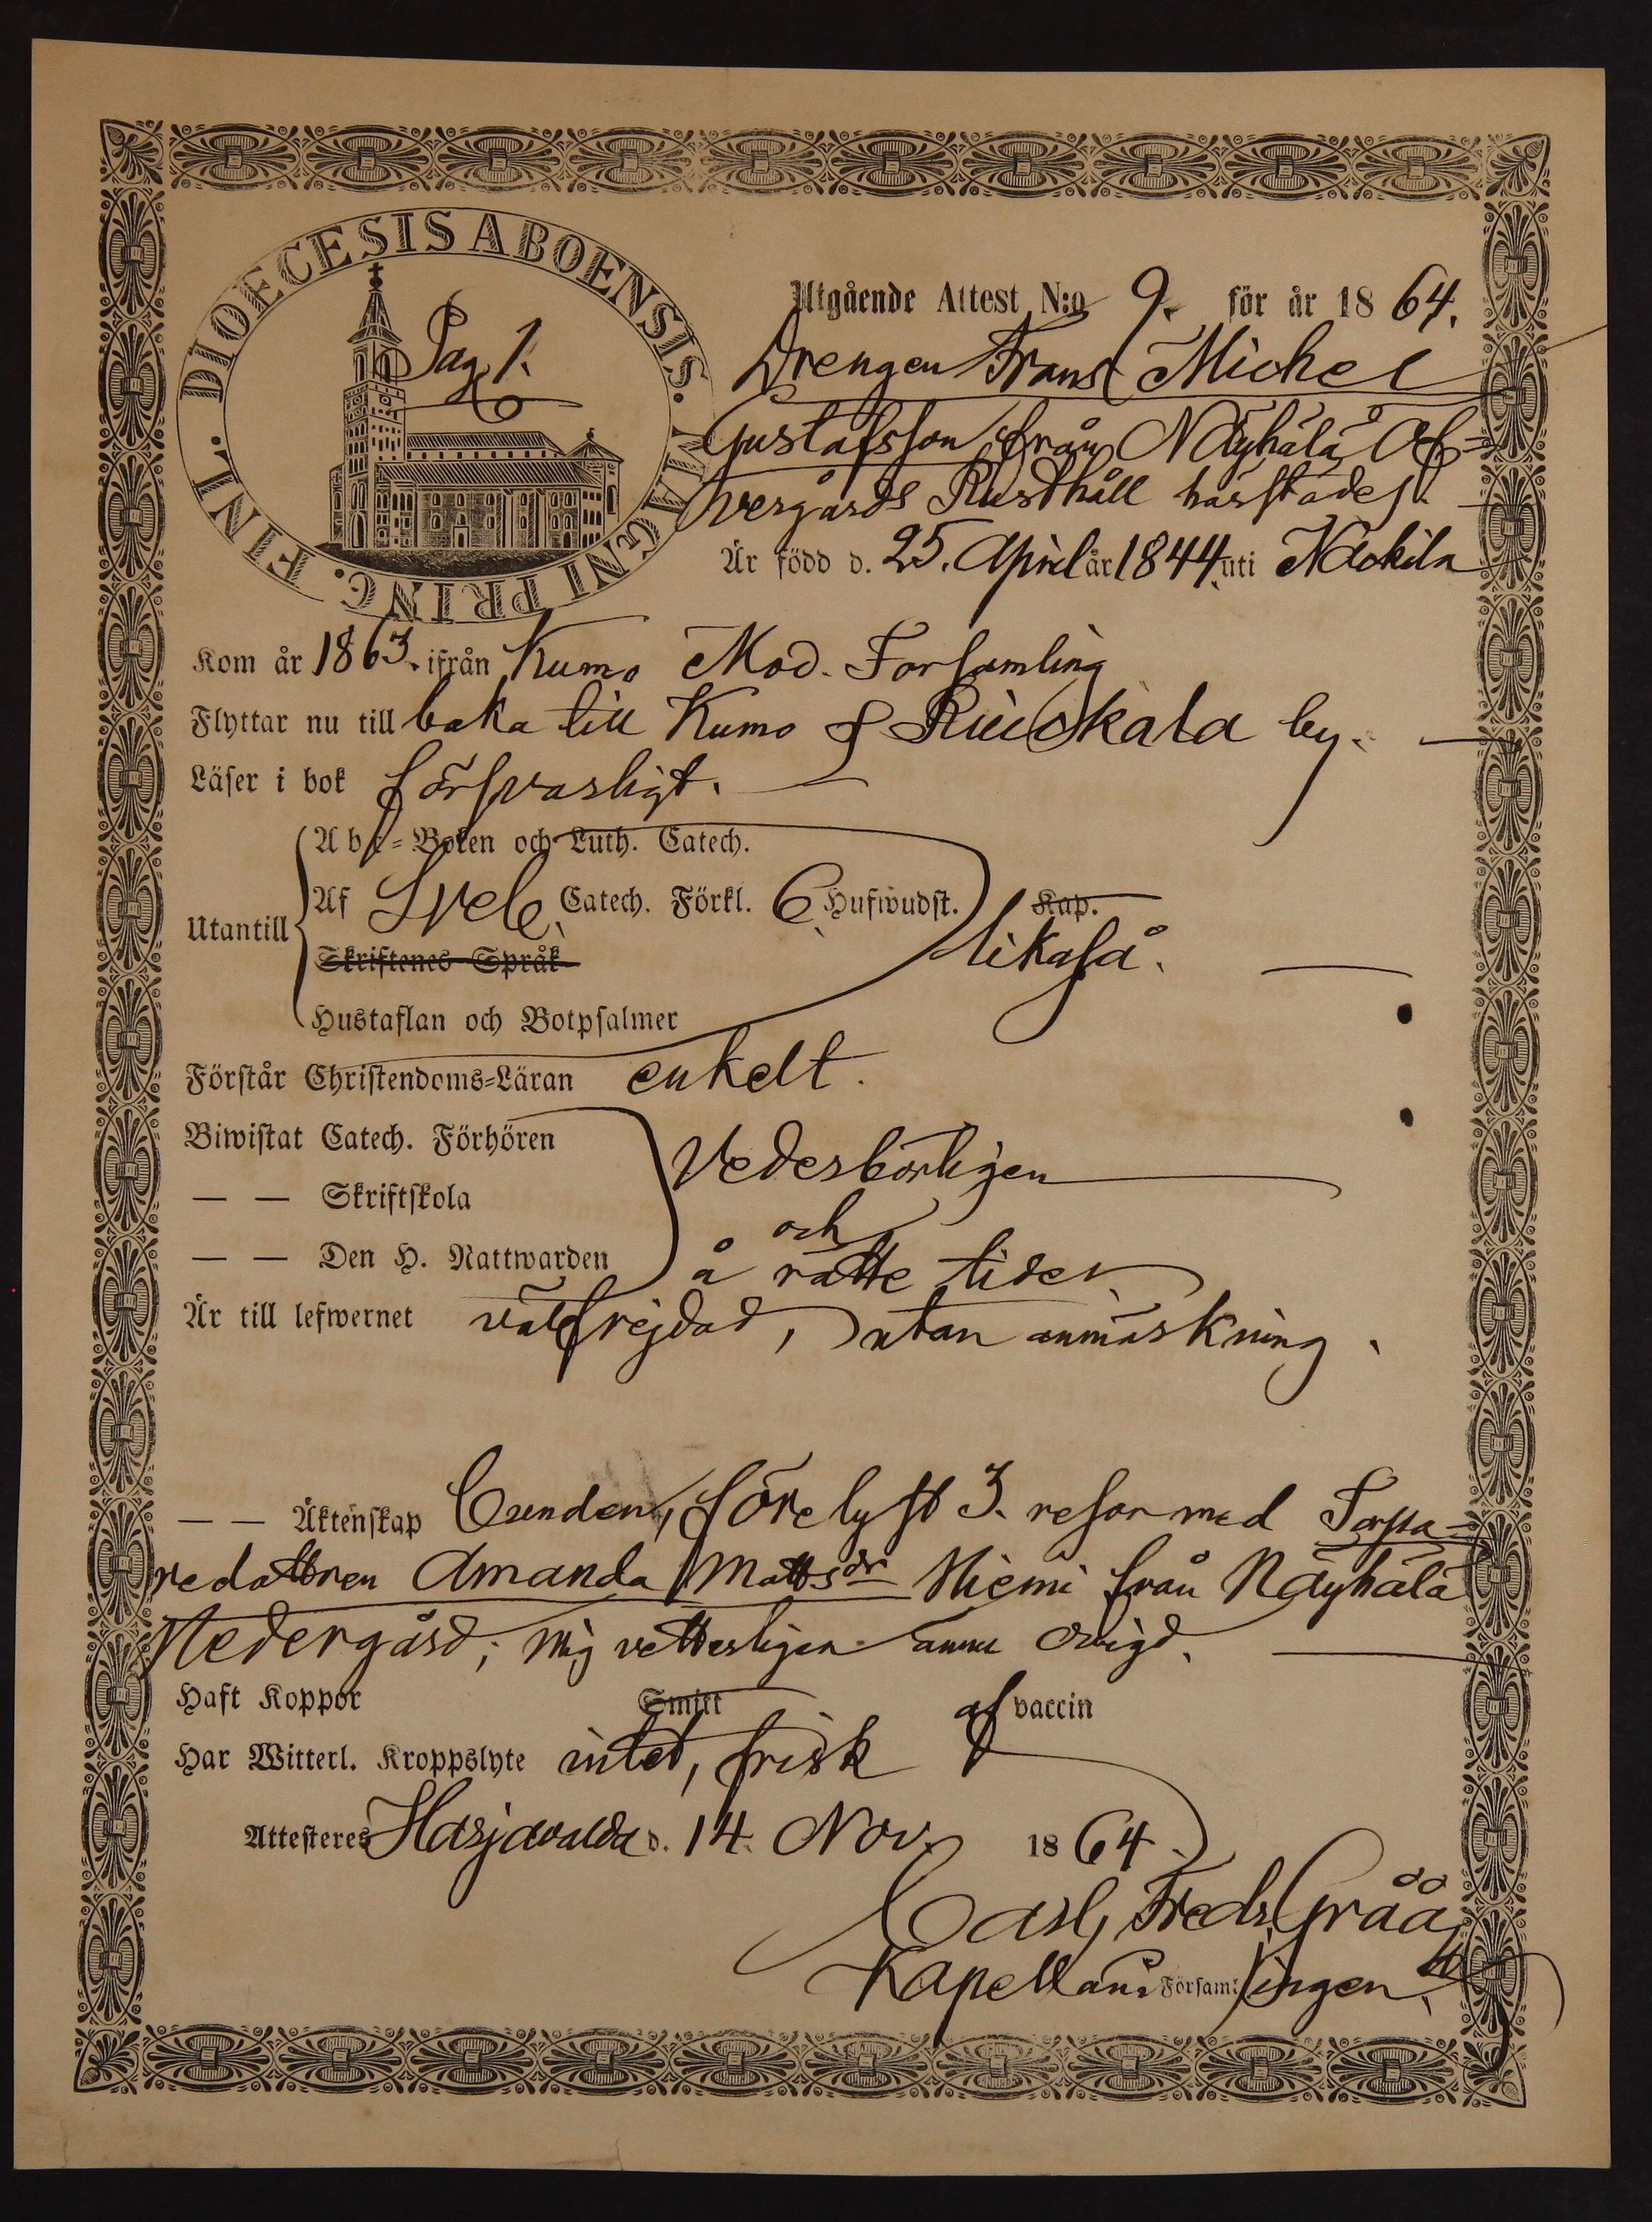 DIOECESIS ABOENSIS. MAGNI PRINC. FINL.
Pag. 1.
Utgående Attest N:o 9. för år 1864.
Drengen Frans Michel
Gustafsson från Näyhälä Öf-
vergårds Rusthåll härstädes.
Är född d. 25. April år 1844 uti Nackila
Kom år 1863. ifrån Kumo Mod. Församling
Flyttar nu till baka till Kumo & Ruiskala by.
Läser i bok försvarligt.
Abc-Boken och Luth. Catech.
Utantill Af Sveb. Catech. Förkl. 6 Hufwudst. Kap.
likaså.
Skriftenes Språk
Hustaflan och Botpsalmer
Förstår Christendoms-Läran enkelt.
Biwistat Catech. Förhören
Vederbörligen
— — Skriftskola
och
— — Den H. Nattwarden å rätte tider
Är till lefwernet välfrejdad, utan anmärkning.
— — Äktenskap förelyst 3. resor med
redottren Amanda Mattsdr Niemi från Näyhälä
Nedergård; mig vetterligen ännu ovigd.
Haft Koppor Smitt af vaccin
Har Witterl. Kroppslyte intet, frisk
Attesteres Harjavalda d. 14. Nov. 1864.
Carl Fredr. Gråå
Kapellan i Församlingen.